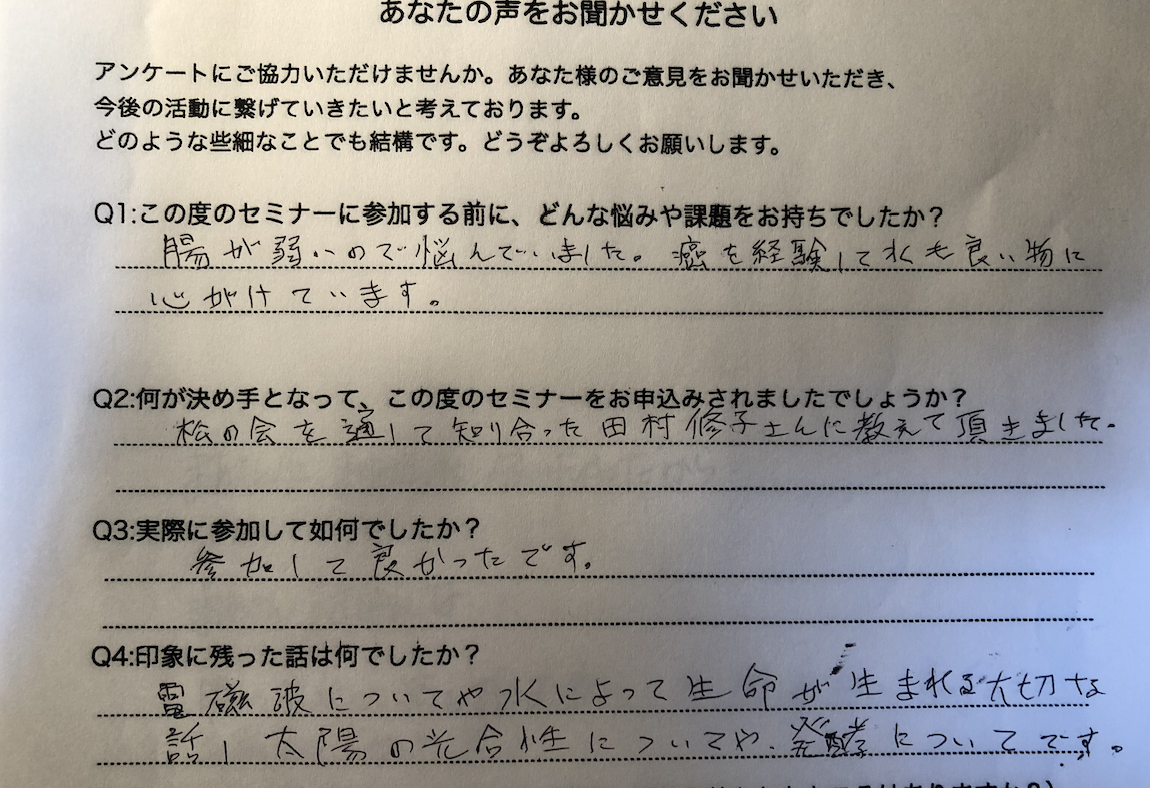 あなたの声をお聞かせください
アンケートにご協力いただけませんか。あなた様のご意見をお聞かせいただき、
今後の活動に繋げていきたいと考えております。
どのような些細なことでも結構です。どうぞよろしくお願いします。
Q1:この度のセミナーに参加する前に、どんな悩みや課題をお持ちでしたか？
腸が弱いので悩んでいました。癌を経験して水も良い物に
心がけています。
Q2:何が決め手となって、この度のセミナーをお申込みされましたでしょうか？
松の会を通して知り合った田村修子さんに教えて頂きました。
Q3:実際に参加して如何でしたか？
参加して良かったです。
Q4:印象に残った話は何でしたか？
電磁波についてや水によって生命が生まれる大切な
話し太陽の光合性についてや、発酵についてです。